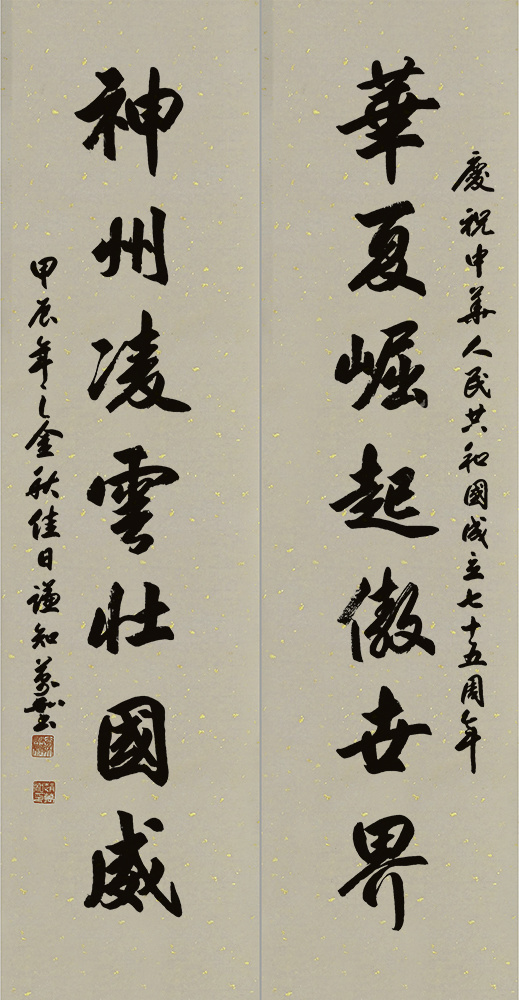 慶祝中華人民共和國成立七十五周年
華夏崛起傲世界
神州凌雲壯國威
甲辰年之金秋佳日謙知